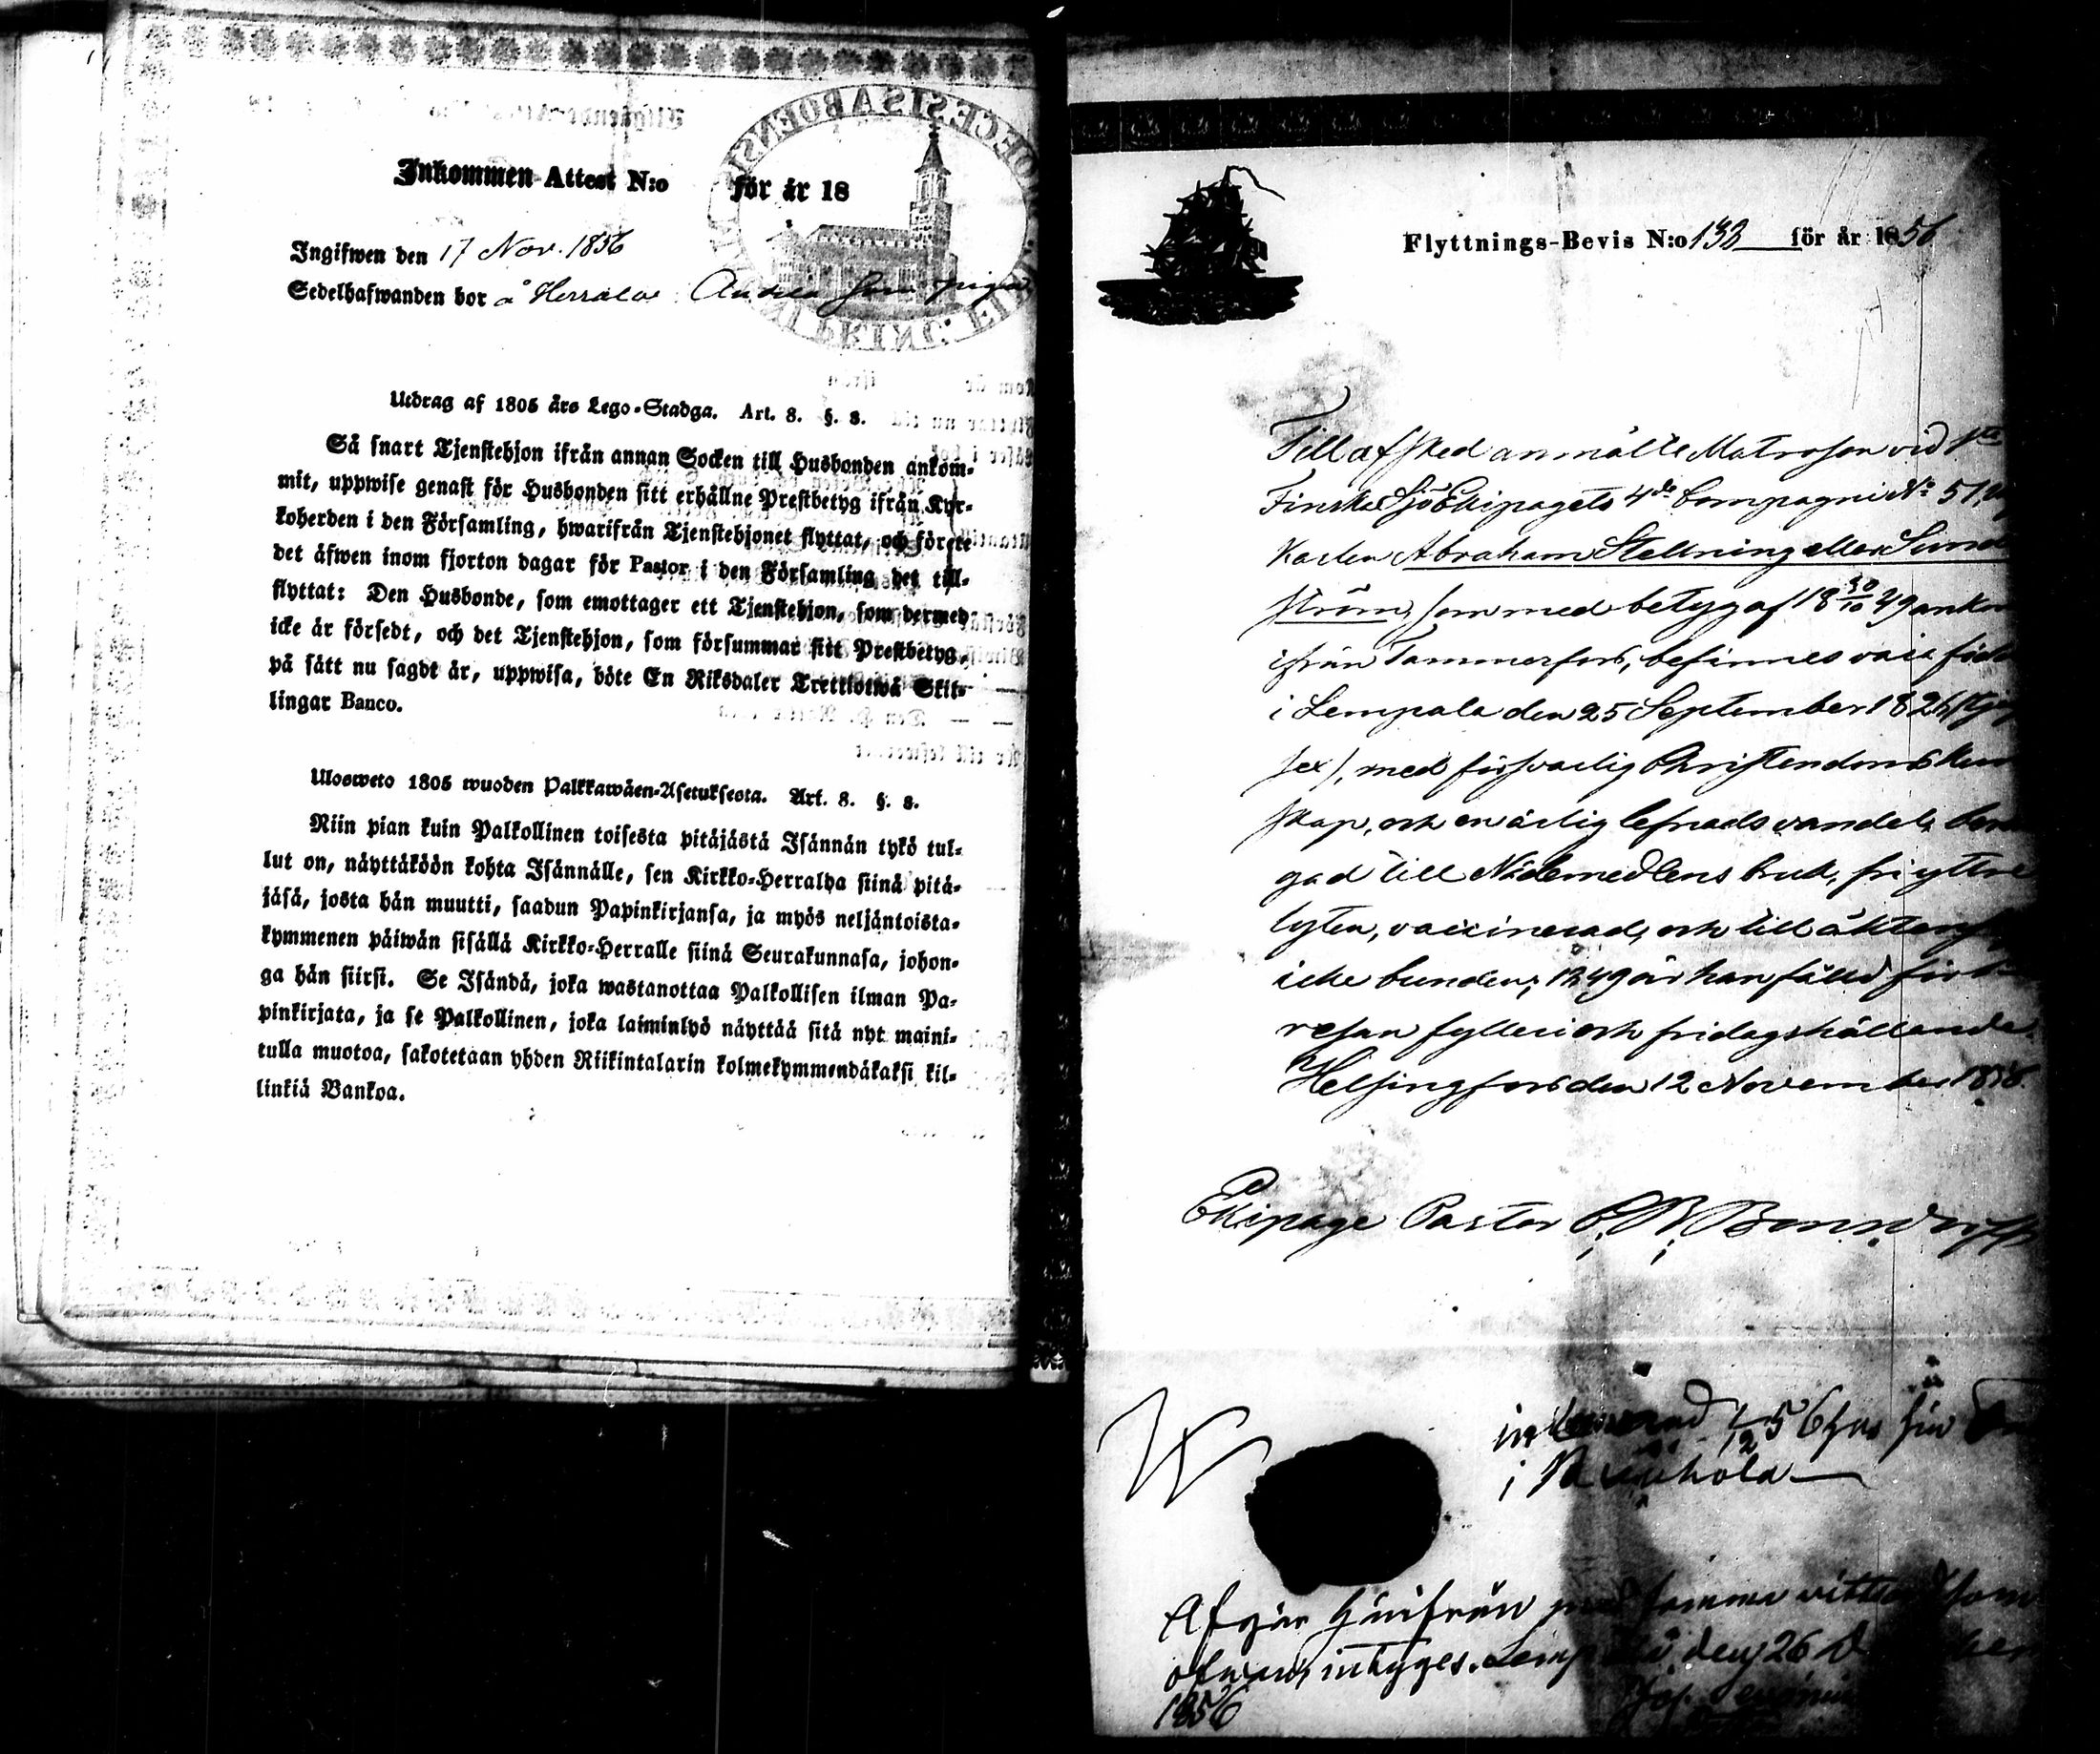 Inkommen Attest N:o för år 18
Ingifwen den 17 Nov. 1856
Sedelhafwanden bor å Herrala Andila som piga
Utdrag af 1805 års Lego-Stadga. Art. 8. §. 8.
Så snart Tjenstehjon ifrån annan Socken till Husbonden ankom-
mit, uppwise genast för Husbonden sitt erhållne Prestbetyg ifrån Kyr-
koherden i den Församling, hwarifrån Tjenstehjonet flyttat, och förete
det äfwen inom fjorton dagar för Pastor i den Församling det till-
flyttat: Den Husbonde, som emottager ett Tjenstehjon, som dermed
icke är försedt, och det Tjenstehjon, som försummar sitt Prestbetyg,
på sätt nu sagdt är, uppwisa, böte En Riksdaler Trettiotwå Skil-
lingar Banco.
Ulosweto 1805 wuoden Palkkawäen-Asetuksesta. Art. 8. §. 8.
Niin pian kuin Palkollinen toisesta pitäjästä Isännän tykö tul-
lut on, näyttäköön kohta Isännälle, sen Kirkko-Herralha siinä pitä-
jäsä, josta hän muutti, saadun Papinkirjansa, ja myös neljäntoista-
kymmenen päiwän sisällä Kirkko-Herralle siinä Seurakunnasa, johon-
ga hän siirsi. Se Isändä, joka wastanottaa Palkollisen ilman Pa-
pinkirjata, ja se Palkollinen, joka laiminlyö näyttää sitä nyt maini-
tulla muotoa, sakotetaan yhden Riikintalarin kolmekymmendäkaksi kil-
linkiä Bankoa.
Flyttnings-Bevis N:o 132 för år 1856
Till afsked anmälte Matrosen vid 1sta
Finska Sjö Ekipagets 4de Compagni No 51,
Karlen Abraham Stellning eller Sund
ström, som med betyg af 18 30/10 49 ankom
ifrån Tammerfors, befinnes vara född
i Lempala den 25 September 1826 /tjugu
sex/, med försvarlig Christendoms kun
skap, och en ärlig lefnads vandel, bere
gad till Nådemedlens bruk, fri yttre
lyten, vaccinerad, och till äktenskap
icke bunden; 1849 är han fälld för
resan fylleri och fridagshållande.
Helsingfors den 12 November 1856.
Ekipage Pastor C. R. Bonsdorff
1/12 56 för
i
Afgår härifrån med samma vittnesb som
ofwan, intyges. Lempälä den 26 December
1856